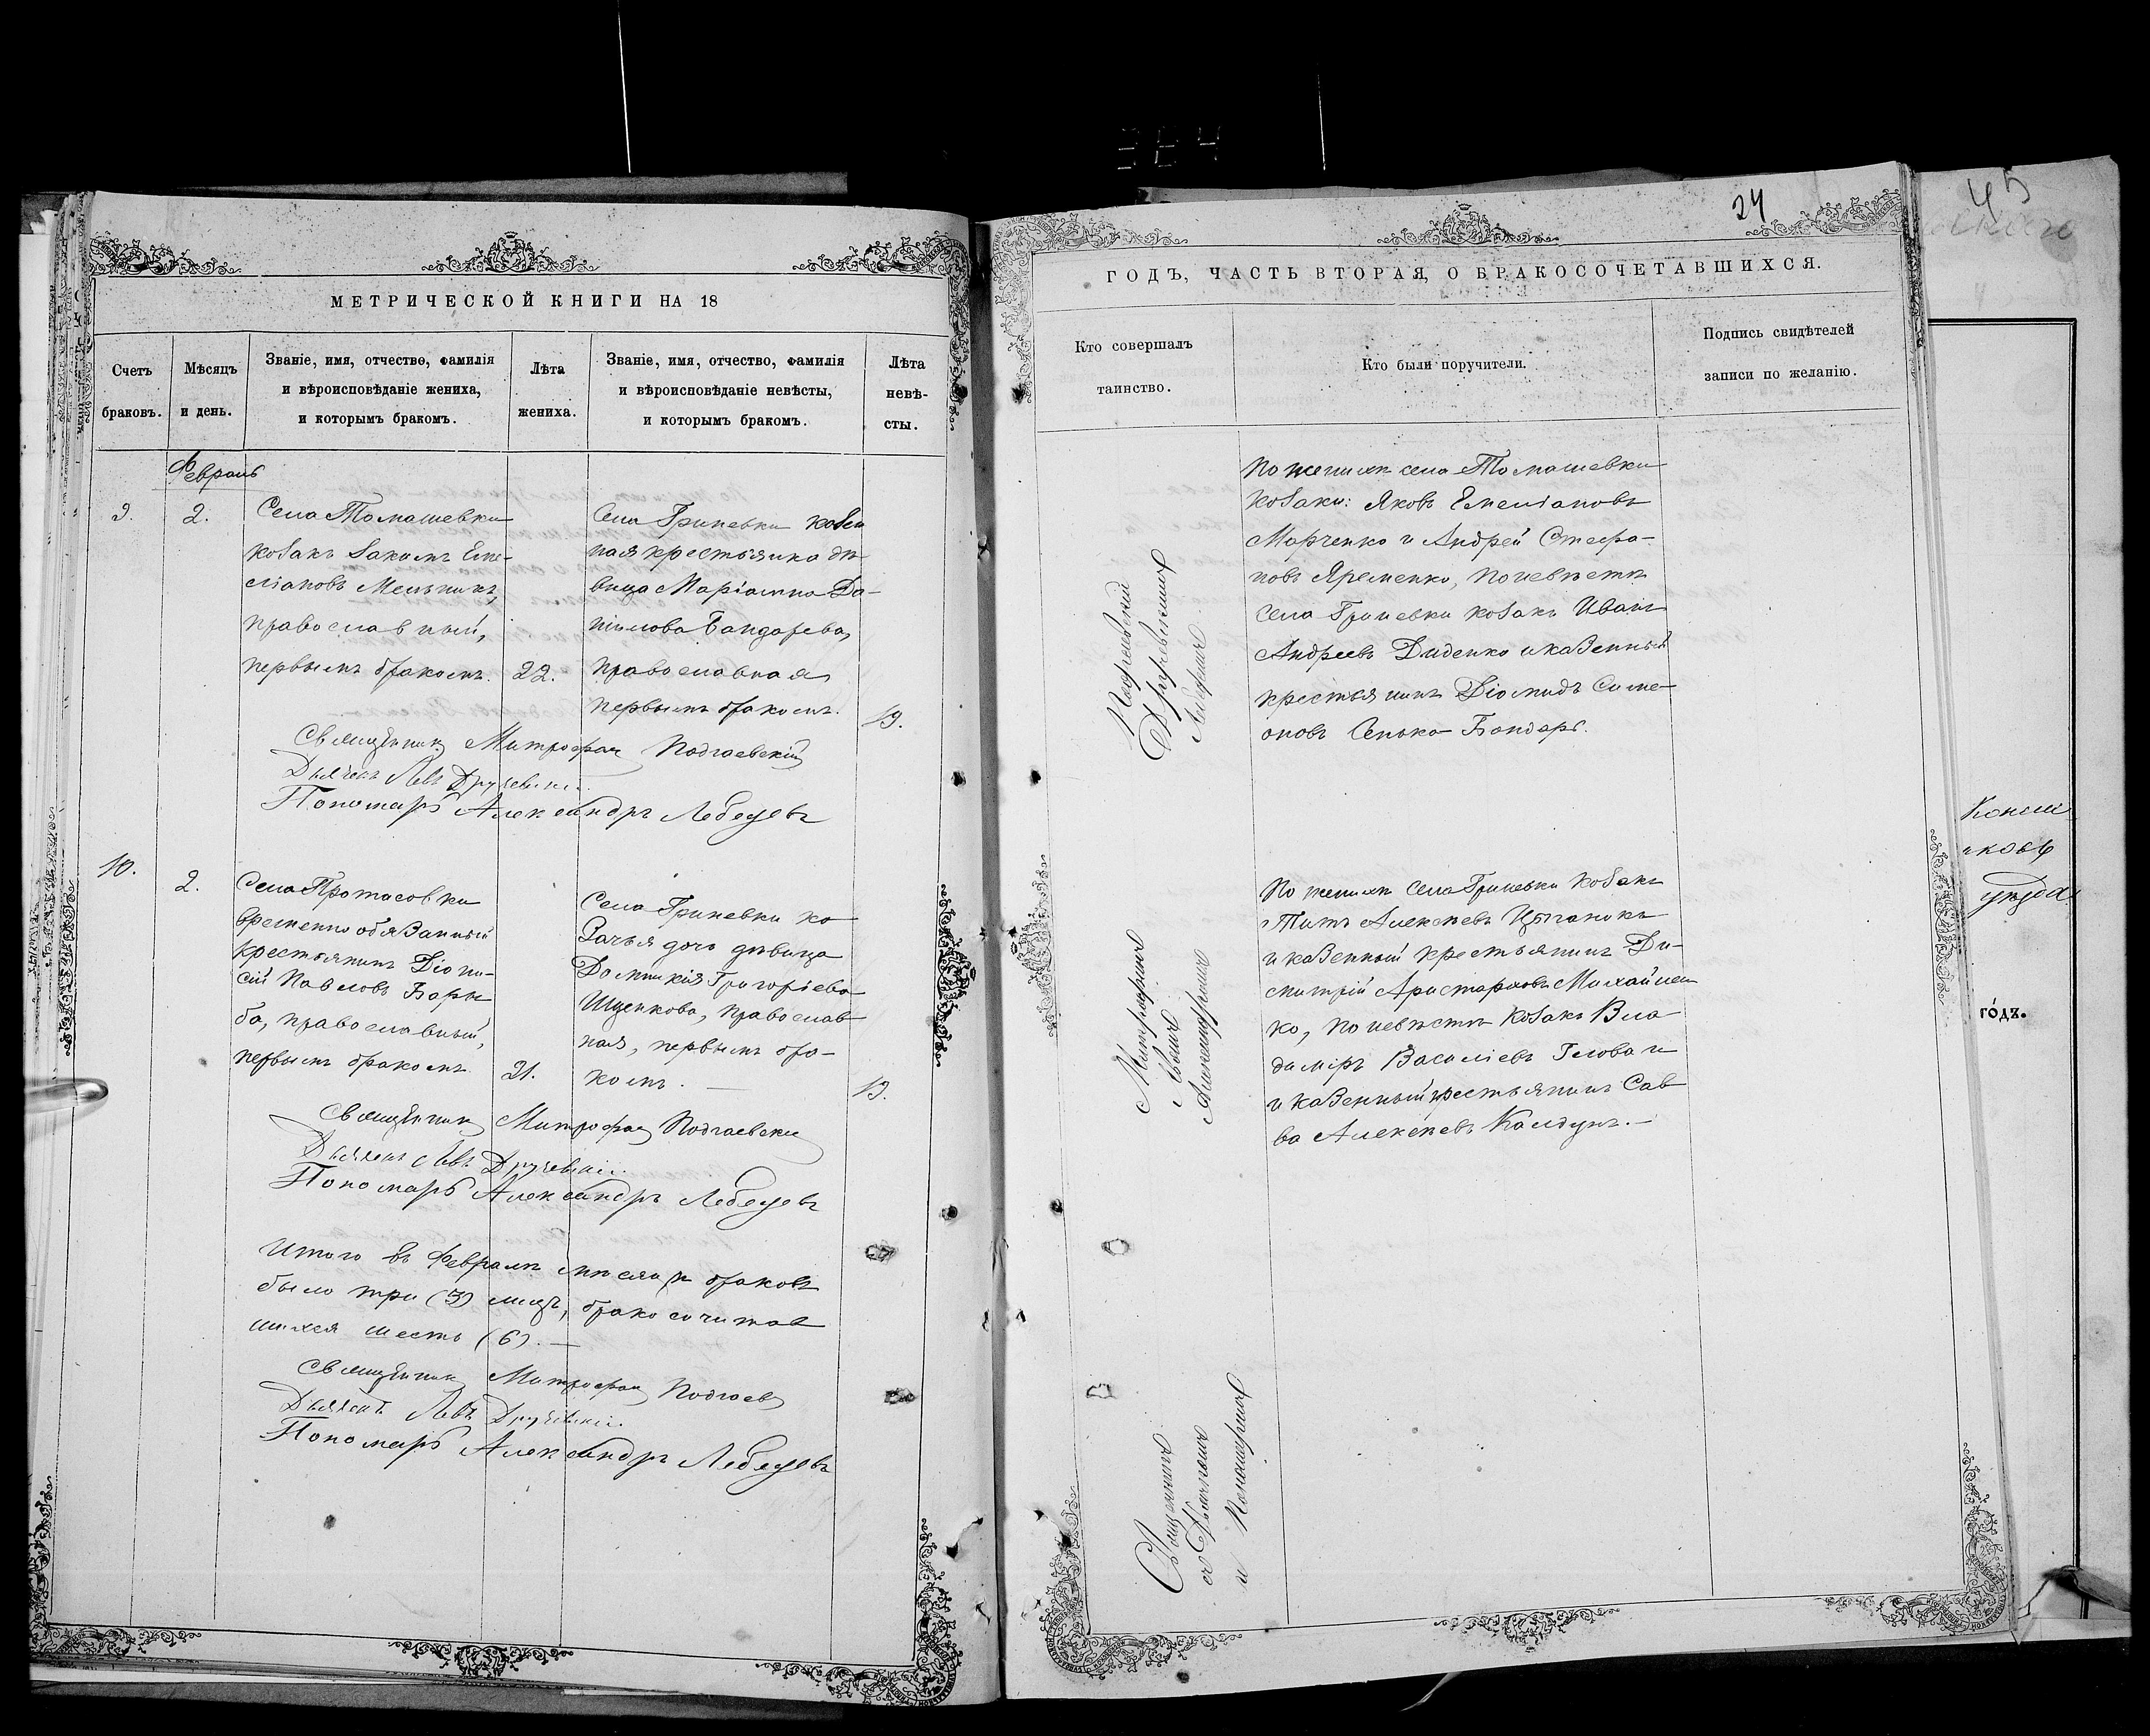 364
МЕТРИЧЕСКОЙ КНИГИ НА 18
Счетъ браковъ.
Мѣсяцъ и день.
Званіе, имя, отчество, фамилія
и вѣроисповѣданіе жениха,
и которымъ бракомъ.
Лѣта жениха.
Званіе, имя, отчество, фамилія
и вѣроисповѣданіе невѣсты,
и которымъ бракомъ.
Лѣта невѣ-
сты.
Февраль
9.
2.
Села Томашевки
козакъ Іакимъ Еме-
ліановъ Мельникъ,
православный,
первымъ бракомъ.
22.
Села Гриневки казен
ная крестьянка дѣ-
вица Маріамна Да-
нилова Бандарева,
православная
первымъ бракомъ.
19.
Священникъ Митрофанъ Подгаевскій
Дьячекъ Левъ
Пономарь Александръ Лебедевъ
10.
2.
Села Протасовки
временно обязанный
крестьянинъ Діони-
сій Павловъ Бары
ба, православный,
первымъ бракомъ
21.
Села Гриневки ка
зачья дочь дѣвица
Домникія Григоріева
Ищенкова, православ
ная, первымъ бра-
комъ. —
19.
Священникъ Митрофанъ Подгаевскій
Дьячекъ Левъ
Пономарь Александръ Лебедевъ
Итого въ Февралѣ мѣсяцѣ браковъ
было три (3) лицъ, бракосочитав
шихся шесть (6). —
Священникъ Митрофанъ Подгаев
Дьячекъ Левъ
Пономарь Александръ Лебедевъ
24
45
ГОДЪ, ЧАСТЬ ВТОРАЯ, О БРАКОСОЧЕТАВШИХСЯ.
Кто совершалъ
таинство.
Кто были поручители.
Подпись свидѣтелей
записи по желанію.
По женихѣ села Томашевки
козаки: Яковъ Емеліановъ
Марченко и Андрей Стефа-
новъ Яременко, по невѣстѣ
села Гриневки козакъ Иванъ
Андреевъ Диденко и казенный
крестьянинъ Діомидъ Симе-
оновъ Сенько Бондарь.
По женихѣ села Гриневки козакъ
Титъ Алексѣевъ Цыганокъ
и казенный крестьянинъ Ди-
митрій Аристарховъ Михайлен
ко, по невѣстѣ козакъ Вла
диміръ Василіевъ Голова и
и казенный крестьянинъ Сав
ва Алексѣевъ Калдунъ. —
Священникъ Митрофанъ Подгаевскій
съ Дьячкомъ Львомъ
и Пономаремъ Александромъ Лебедевымъ
уѣзда
годъ.